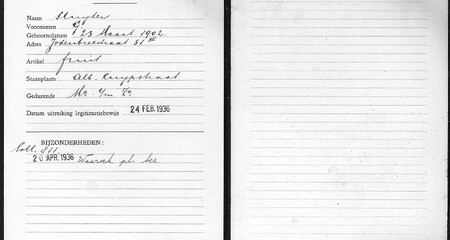 Naam Stuyter
Voornamen G.
Geboortedatum 23 Maart 1902.
Adres Jodenbreestraat 51 III
Artikel fruit
Staanplaats Alb. Cuypstraat
Gedurende Ma. t/m Za
Datum uitreiking legitimatiebewijs 24 FEB. 1936
BIJZONDERHEDEN:
Coll. 811.
20 APR. 1936